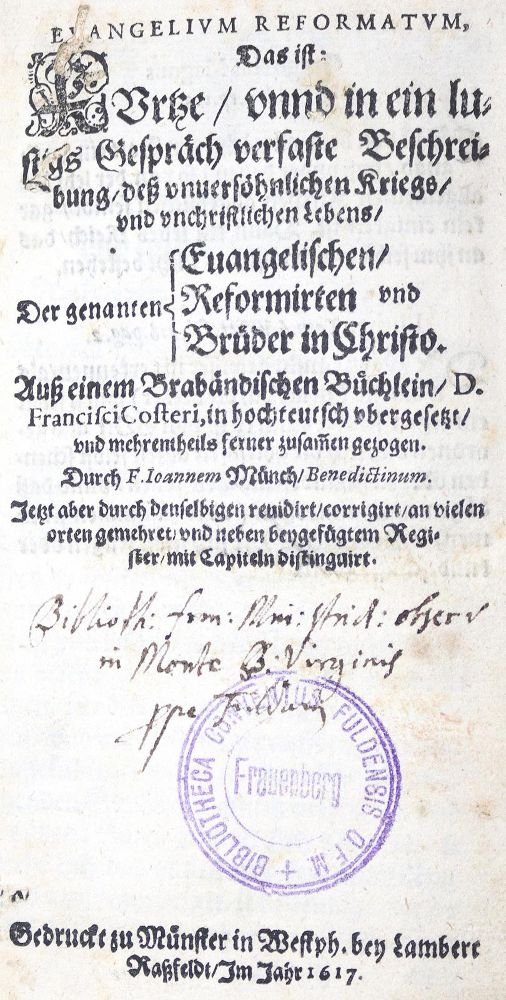 EVANGELIVM REFORMATVM,
Das ist:
KUrtze / vnnd in ein lu-
stigs Gespräch verfaste Beschrei-
bung / deß vnuersöhnlichen Kriegs /
vnd vnchristlichen Lebens /
Der genanten
Euangelischen /
Reformirten vnd
Brüder in Christo.
Auß einem Brabändischen Büchlein / D.
Francisci Costeri, in hochteutsch vbergesetzt /
vnd mehrentheils ferner zusam̃en gezogen.
Durch F. Ioannem Münch / Benedictinum.
Jetzt aber durch denselbigen reuidirt / corrigirt / an vielen
orten gemehret / vnd neben beygefügtem Regi-
ster / mit Capiteln distinguirt.
Biblioth: frm: Min: strict: obserν
in Monte B. Virginis
ppe Fuldam
BIBLIOTHECA CONVENTUS FULDENSIS O.F.M. +
Frauenberg
Gedruckt zu Münster in Westph. bey Lambert
Raßfeldt / Im Jahr 1617.